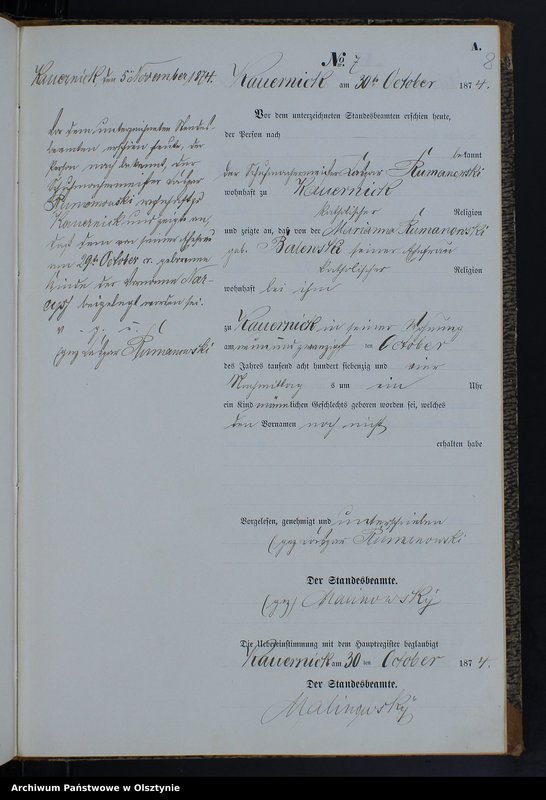 A.
8
№ 7
Kauernick am 30ten October 1874.
Vor dem unterzeichneten Standesbeamten erschien heute,
der Person nach
bekannt
der Schuhmachermeister Rumanowski
wohnhaft zu Kauernick
katholischer Religion
und zeigte an, daß von der Marianna Rumanowski
geb. Balewski seiner Ehefrau
katholischer Religion
wohnhaft bei ihm
zu Kauernick in seiner Wohnung
am neun und zwanzigst ten October
des Jahres tausend acht hundert siebenzig und vier
Nachmittag s um ein Uhr
ein Kind männlichen Geschlechts geboren worden sei, welches
den Vornamen noch nicht
erhalten habe
Vorgelesen, genehmigt und unterschrieben
(gez Rumanowski
Der Standesbeamte.
(gez) Malinowsky
Die Uebereinstimmung mit dem Hauptregister beglaubigt
Kauernick am 30 ten October 1874.
Der Standesbeamte.
Malinowsky
Kauernick, den 5 November 1874.
Vor dem unterzeichneten Standes-
beamten erschien heute, der
Person nach bekannt, der
Schuhmachermeister
Rumanowski wohnhaft zu
Kauernick und zeigte an,
daß dem von seiner Ehefrau
am 29ten October cr. geborenen
Kinde der Vorname Nar-
beigelegt worden sei.
v. g. u.
(gez Rumanowski
Archiwum Państwowe w Olsztynie